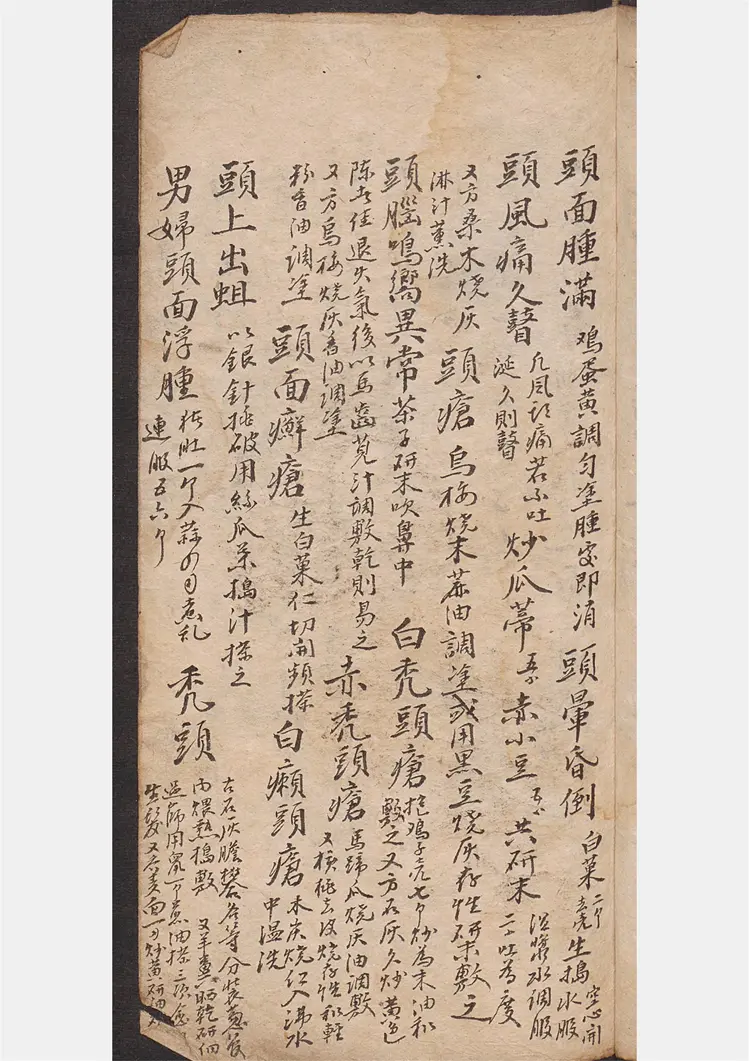 頭面腫滿 鳮蛋黃調勻塗腫處即消 頭暈昏倒 白菓二个去壳生搗水服空心開
頭風痛久瞽 凡風頭痛若不吐涎久則瞽 炒瓜蒂五分 赤小豆五分 共研末 漿水調服二十吐為度
又方桑木燒灰淋汁薰洗 頭瘡 烏梅燒末蔴油調塗或用黑豆燒灰存性研末敷之
頭腦鳴嚮異常 茶子研末吹鼻中 白禿頭瘡 抱鳮子壳七个炒為末油和敷之又方石灰久炒黃色
陳 退火氣後以馬齒莧汁調敷乾則易之 赤禿頭瘡 馬蹄瓜燒灰油調敷
又方烏梅燒灰香油調塗 又 燒存性和輕
粉香油調塗 頭面癬瘡 生白菓仁切開頻搽 白癩頭瘡 木炭燒仁入沸水中温洗
頭上出蛆 以銀針挑破用絲瓜葉搗汁搽之
男婦頭面浮腫 一个入蒜 煮 連服五六个 禿頭 古石灰 等分裝葱管
內煨熟搗敷 又羊糞晒乾研細
用 一个 油搽三次
生髮 又 炒黃研油